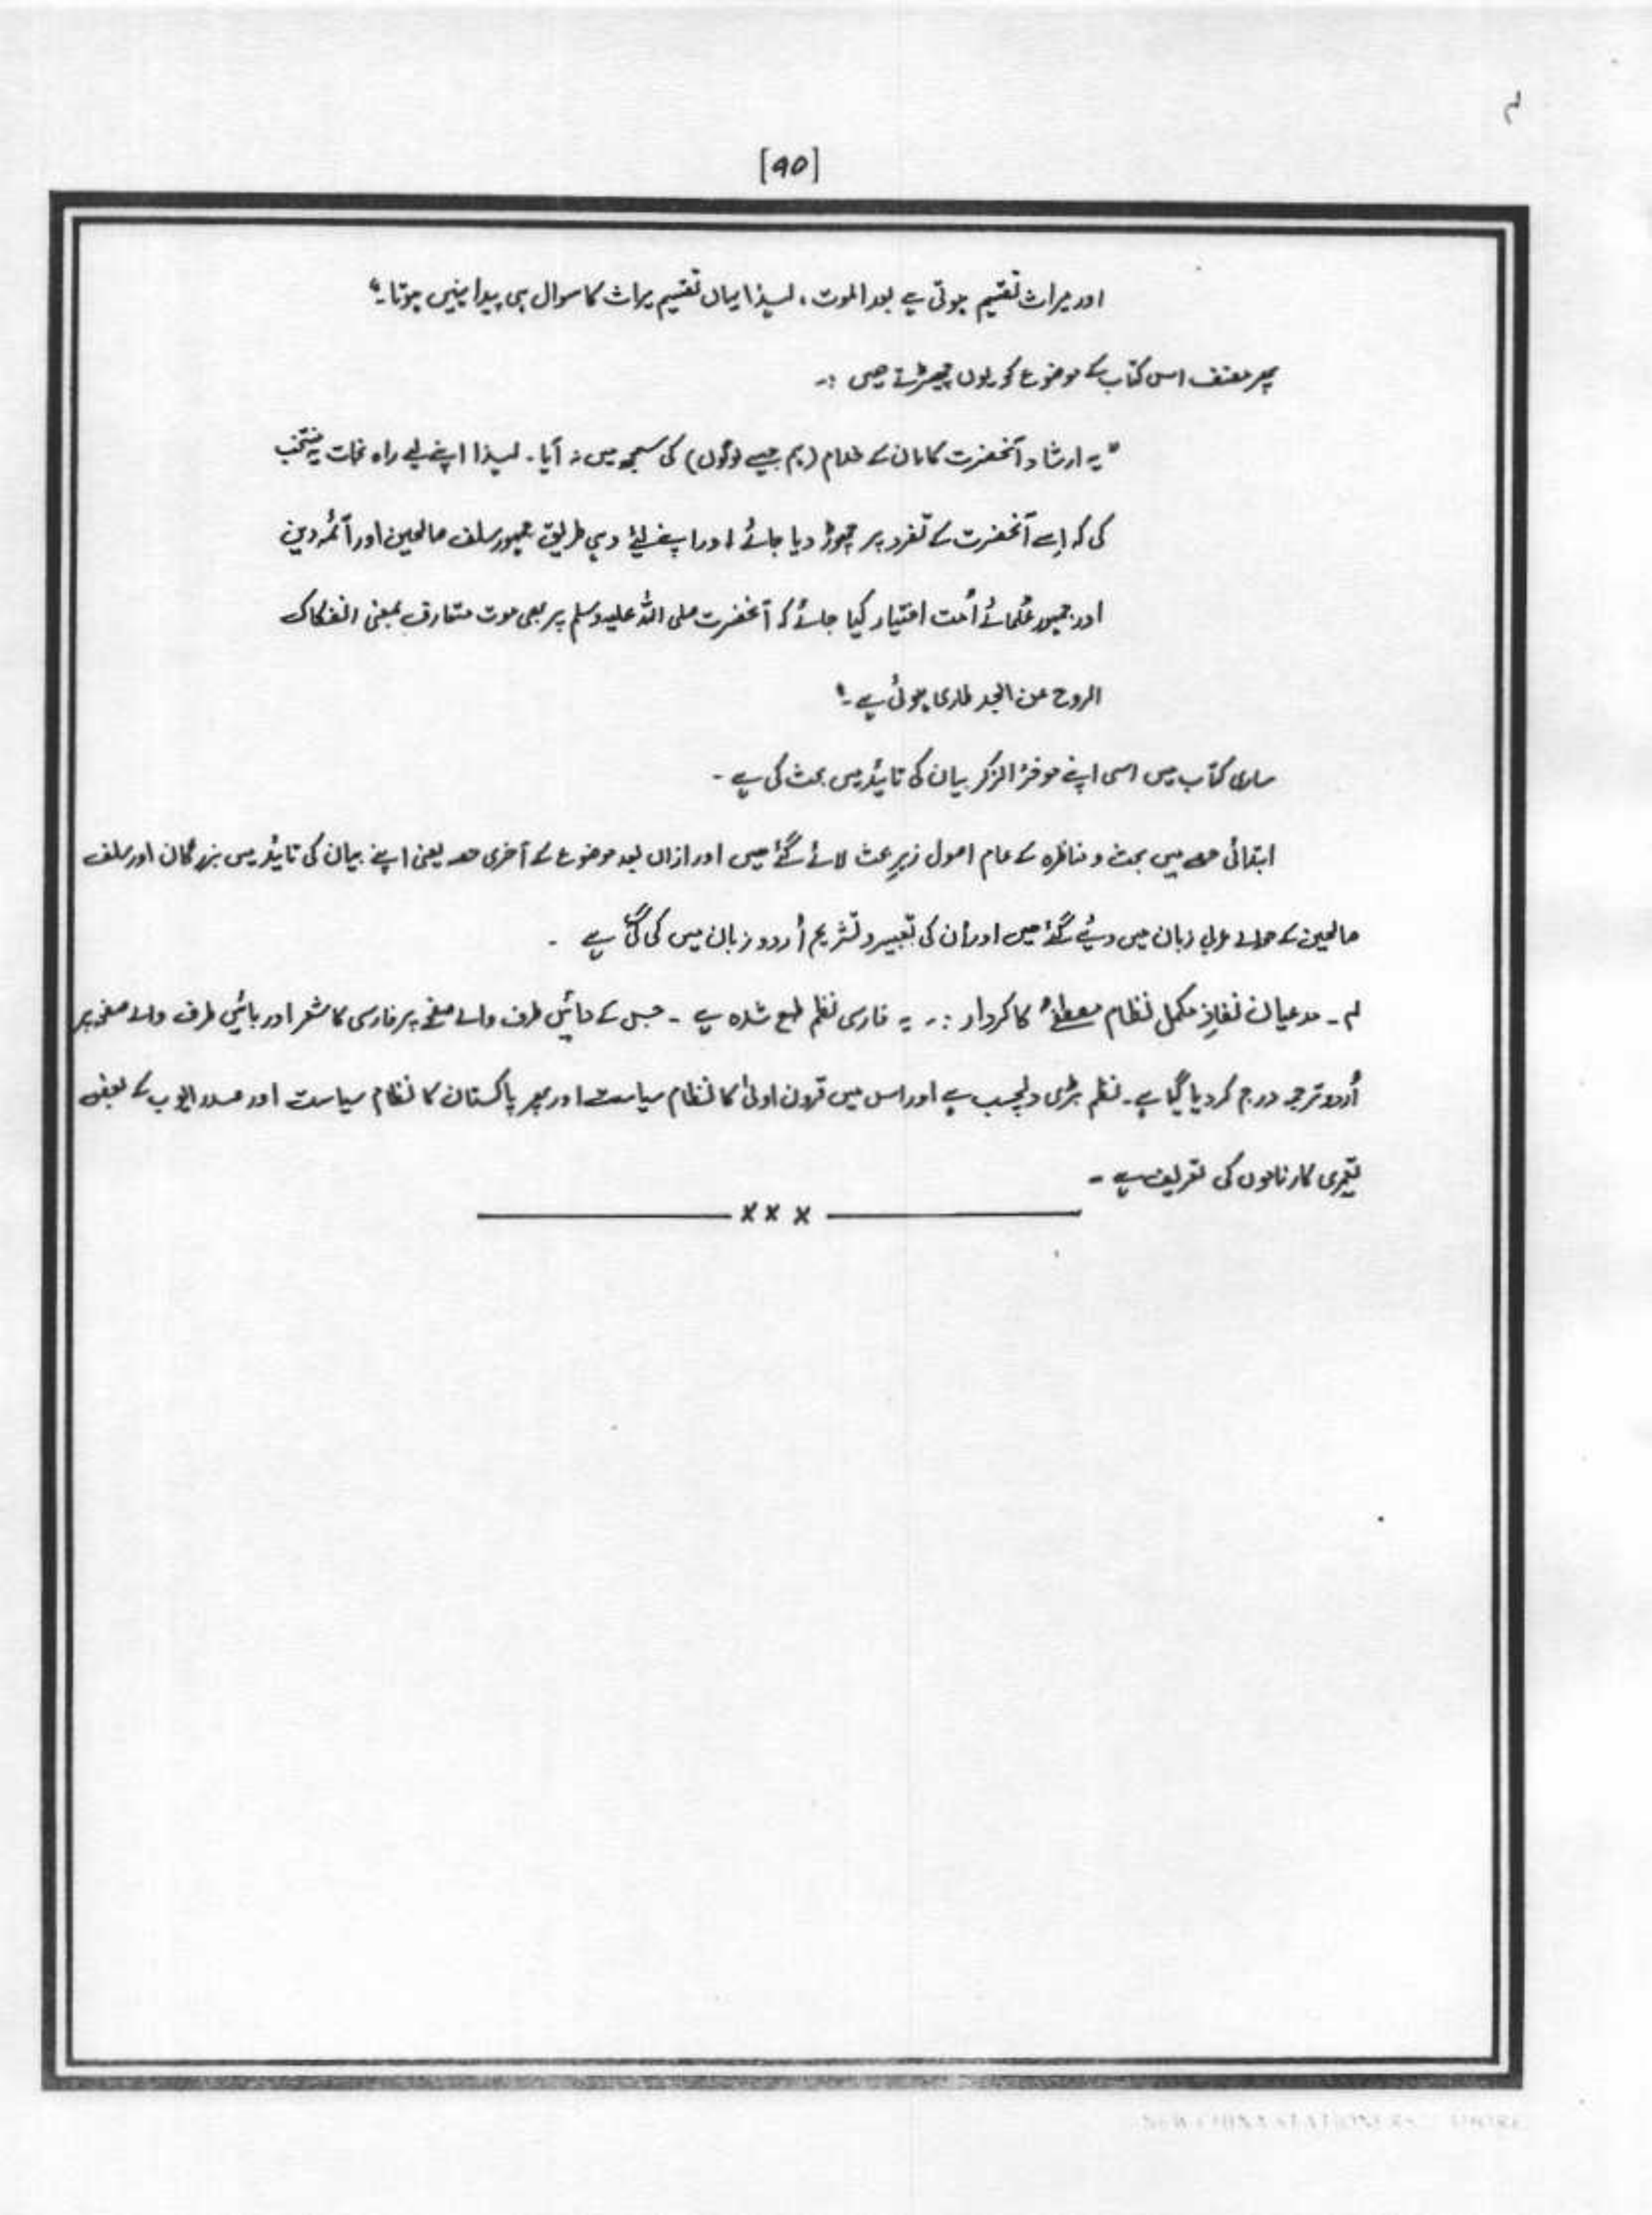 [۹۵]
اور میراث تقسیم ہوتی ہے بعد الموت، لہٰذا یہاں تقسیم میراث کا سوال ہی پیدا نہیں ہوتا۔"
پھر مصنف اس کتاب کے موضوع کو یوں چھیڑتے ہیں :۔
"یہ ارشاد آنحضرت کا ان کے غلام (ہم جیسے لوگوں) کی سمجھ میں نہ آیا۔ لہٰذا اپنے لیے راہ نجات یہ منتخب
کی کہ اِسے آنحضرت کے تفرد پر چھوڑ دیا جائے اور اپنے لیئے وہی طریق جمہور سلف صالحین اور آئمہ دین
اور جمہور عُلمائے اُمت اختیار کیا جائے کہ آنحضرت صلی اللہ علیہ وسلم پر بھی موت متعارف بمعنی انفکاک
الروح عن الجسد طاری ہوئی ہے۔"
ساری کتاب میں اسی اپنے موخرُ الذکر بیان کی تائید میں بحث کی ہے ۔
ابتدائی حصے میں بحث و مناظرہ کے عام اصول زیرِ بحث لائے گئے ہیں اور ازاں بعد موضوع کے آخری حصہ یعنی اپنے بیان کی تائید میں بزرگان اور سلف
صالحین کے حوالے عربی زبان میں دیئے گئے ہیں اور اُن کی تعبیر و تشریح اُردو زبان میں کی گئی ہے ۔
۴ ۔ مدعیان نفاذِ مکمل نظام مصطفےٰ کا کردار :۔ یہ فارسی نظم طبع شدہ ہے ۔ جس کے دائیں طرف والے صفحے پر فارسی کا شعر اور بائیں طرف والے صفحہ پر
اُردو ترجمہ درج کر دیا گیا ہے۔ نظم بڑی دلچسپ ہے اور اس میں قرون اولیٰ کا نظام سیاست اور پھر پاکستان کا نظام سیاست اور صدر ایوب کے بعض
تعمیری کارناموں کی تعریف ہے ۔
× × ×